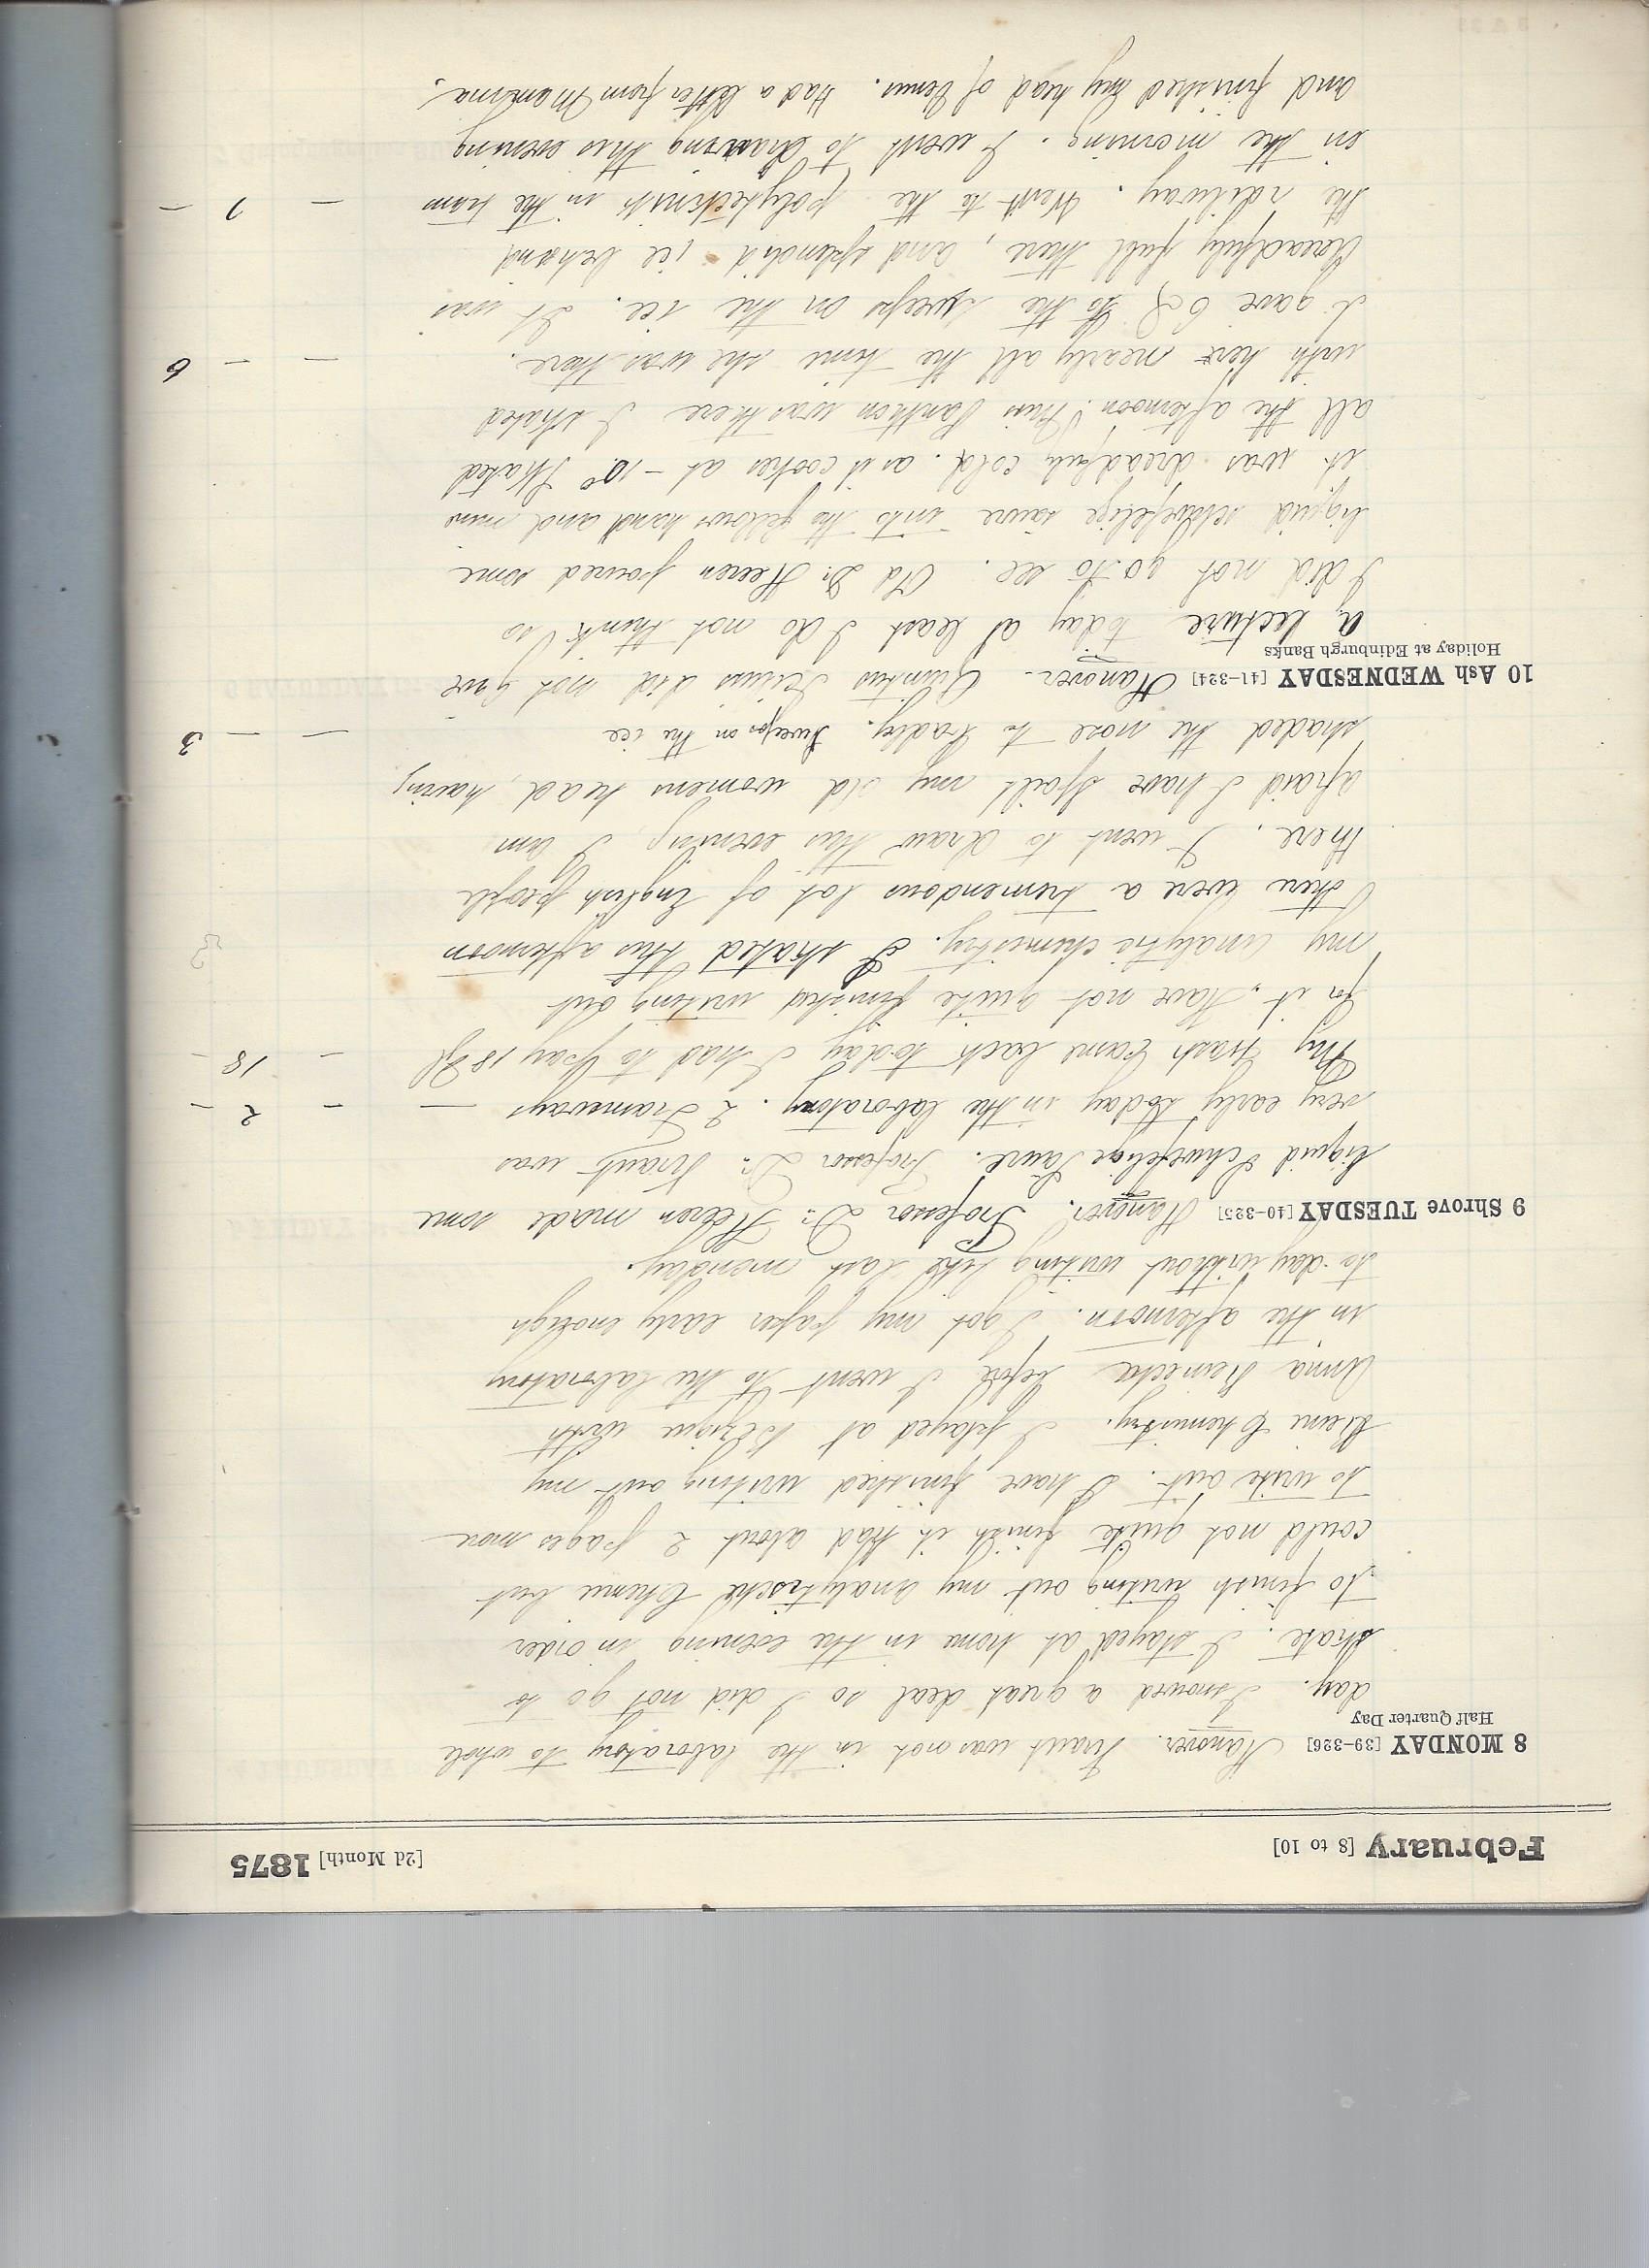 February [8 to 10] [2d Month] 1875
8 MONDAY [39-326] Hanover. Kraut was not in the laboratory to whole
Half Quarter Day
day. Snowed a great deal so I did not go to
skate. I stayed at home in the evening in order
to finish writing out my analytische Chemie but
could not quite finish it. Had about 2 pages more
to write out. I have finished writing out my
Chemistry. I played at Bezique with
Anna before I went to the laboratory
in the afternoon. I got my paper early enough
to-day without writing like last monday.
9 Shrove TUESDAY [40-325] Hanover. Professor Dr. Heeren made some
liquid Schwefelige Saure. Professor Dr. Kraut was
very early today in the laboratory. 2 Tramways — — 2 —
My Wash came back today I had to pay 18 — 18 —
for it. Have not quite finished writing out
my analytic chemistry. I skated this afternoon
there were a tremendous lot of English people
there. I went to draw this evening, I am
afraid I have spoilt my old womens head, having
shaded the nose to badly. Sweeps on the ice — — 3
10 Ash WEDNESDAY [41-324] Hanover. Quintus Icilius did not give
Holiday at Edinburgh Banks
a lecture today at least I do not think so
I did not go to see. Old Dr. Heeren poured some
liquid schwefelige saure into the fellows hand and mine
it was dreadfuly cold. as it cookes at -10° Skated
all the afternoon. Miss was there I skated
with her nearly all the time she was there. — — 6
I gave 6 to the sweeps on the ice. It was
dreadfuly full there, and splendid ice behind
the railway. Went to the polytechnich in the tram — 1 —
in the morning. I went to drawing this evening
and finished my head of Venus. Had a letter from Mamma.